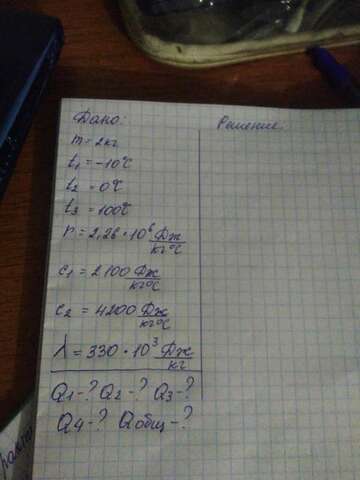 Дано:
Решение:
m = 2кг
t₁ = -10°C
t₂ = 0°C
t₃ = 100°C
r = 2,26 · 10⁶ Дж/кг°C
c₁ = 2100 Дж/кг°C
c₂ = 4200 Дж/кг°C
λ = 330 · 10³ Дж/кг
Q1-? Q2-? Q3-?
Q4-? Qобщ-?